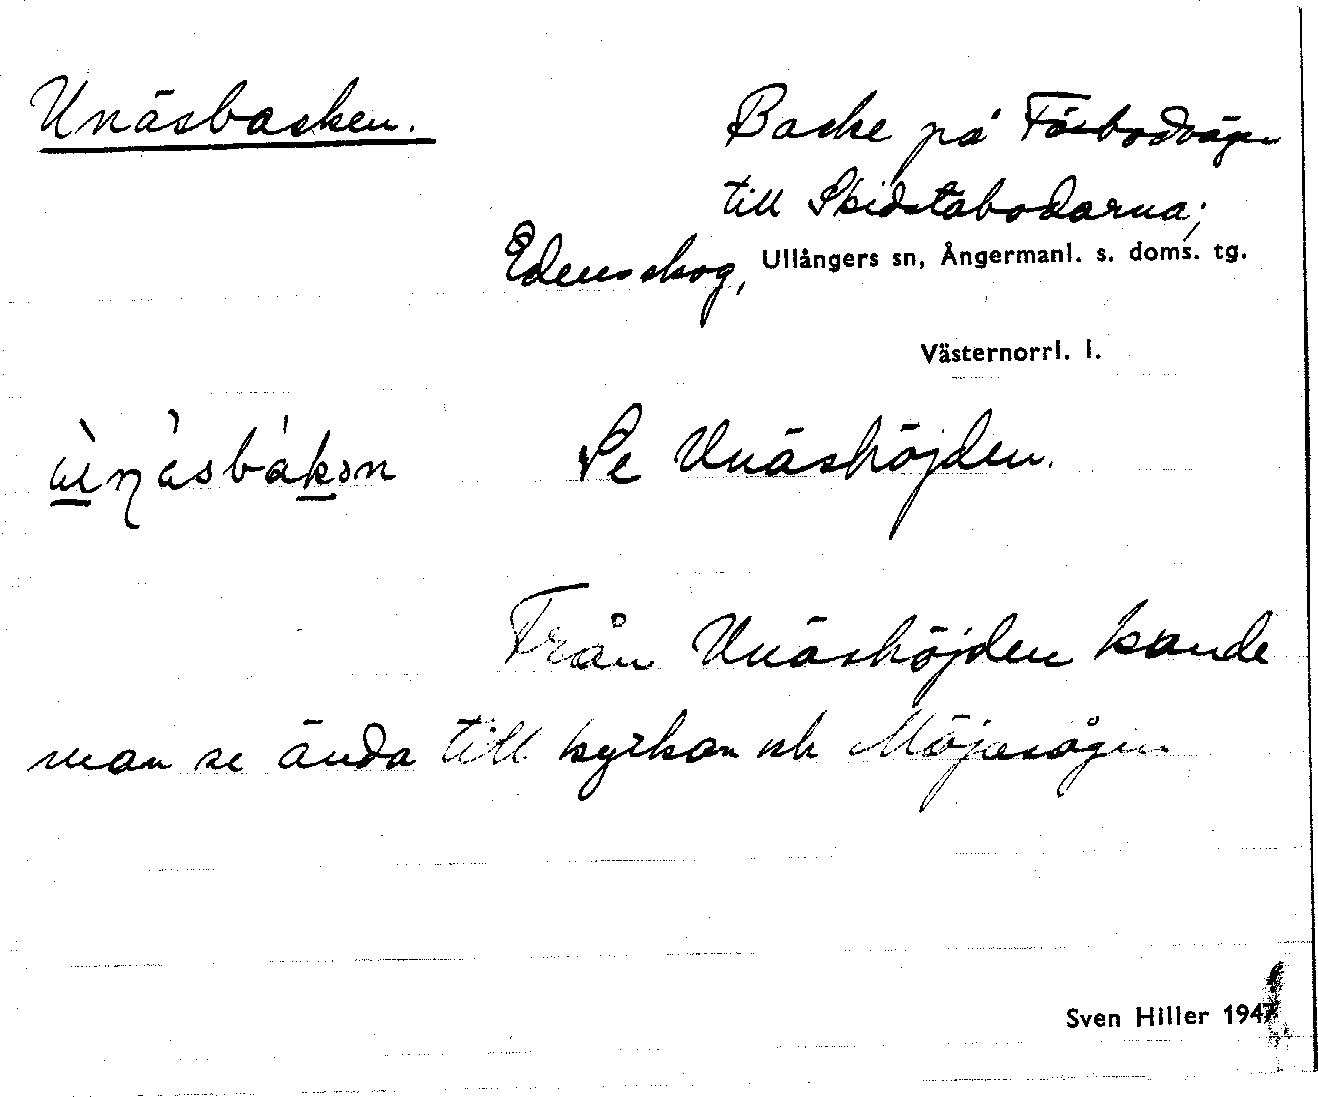 Unäsbacken.
Backe på Fäbodvägen
till Skidstabodarna;
Edensskog, Ullångers sn, Ångermanl. s. doms. tg.
Västernorrl. l.
Se Unäshöjden.
Från Unäshöjden kande
man se ända till kyrkan och Möjasågen
Sven Hiller 1947